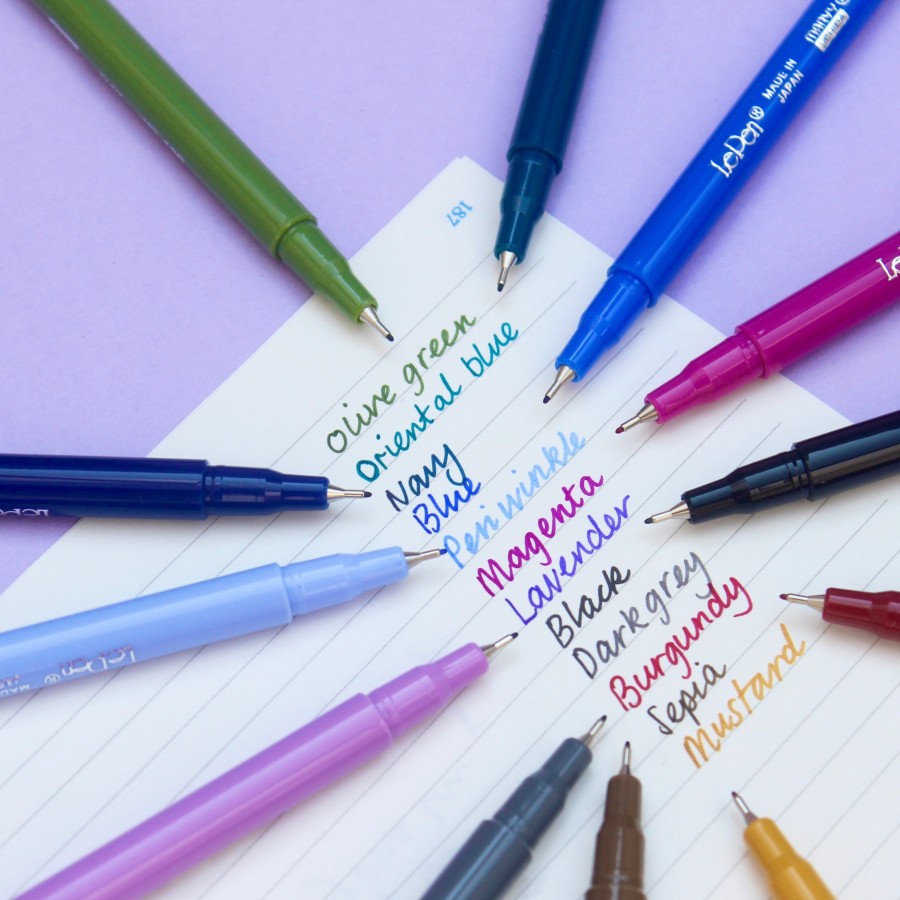 187
Olive green
Oriental blue
Navy
Blue
Periwinkle
Magenta
Lavender
Black
Dark grey
Burgundy
Sepia
Mustard
LePen®
MADE IN
JAPAN
LePen®